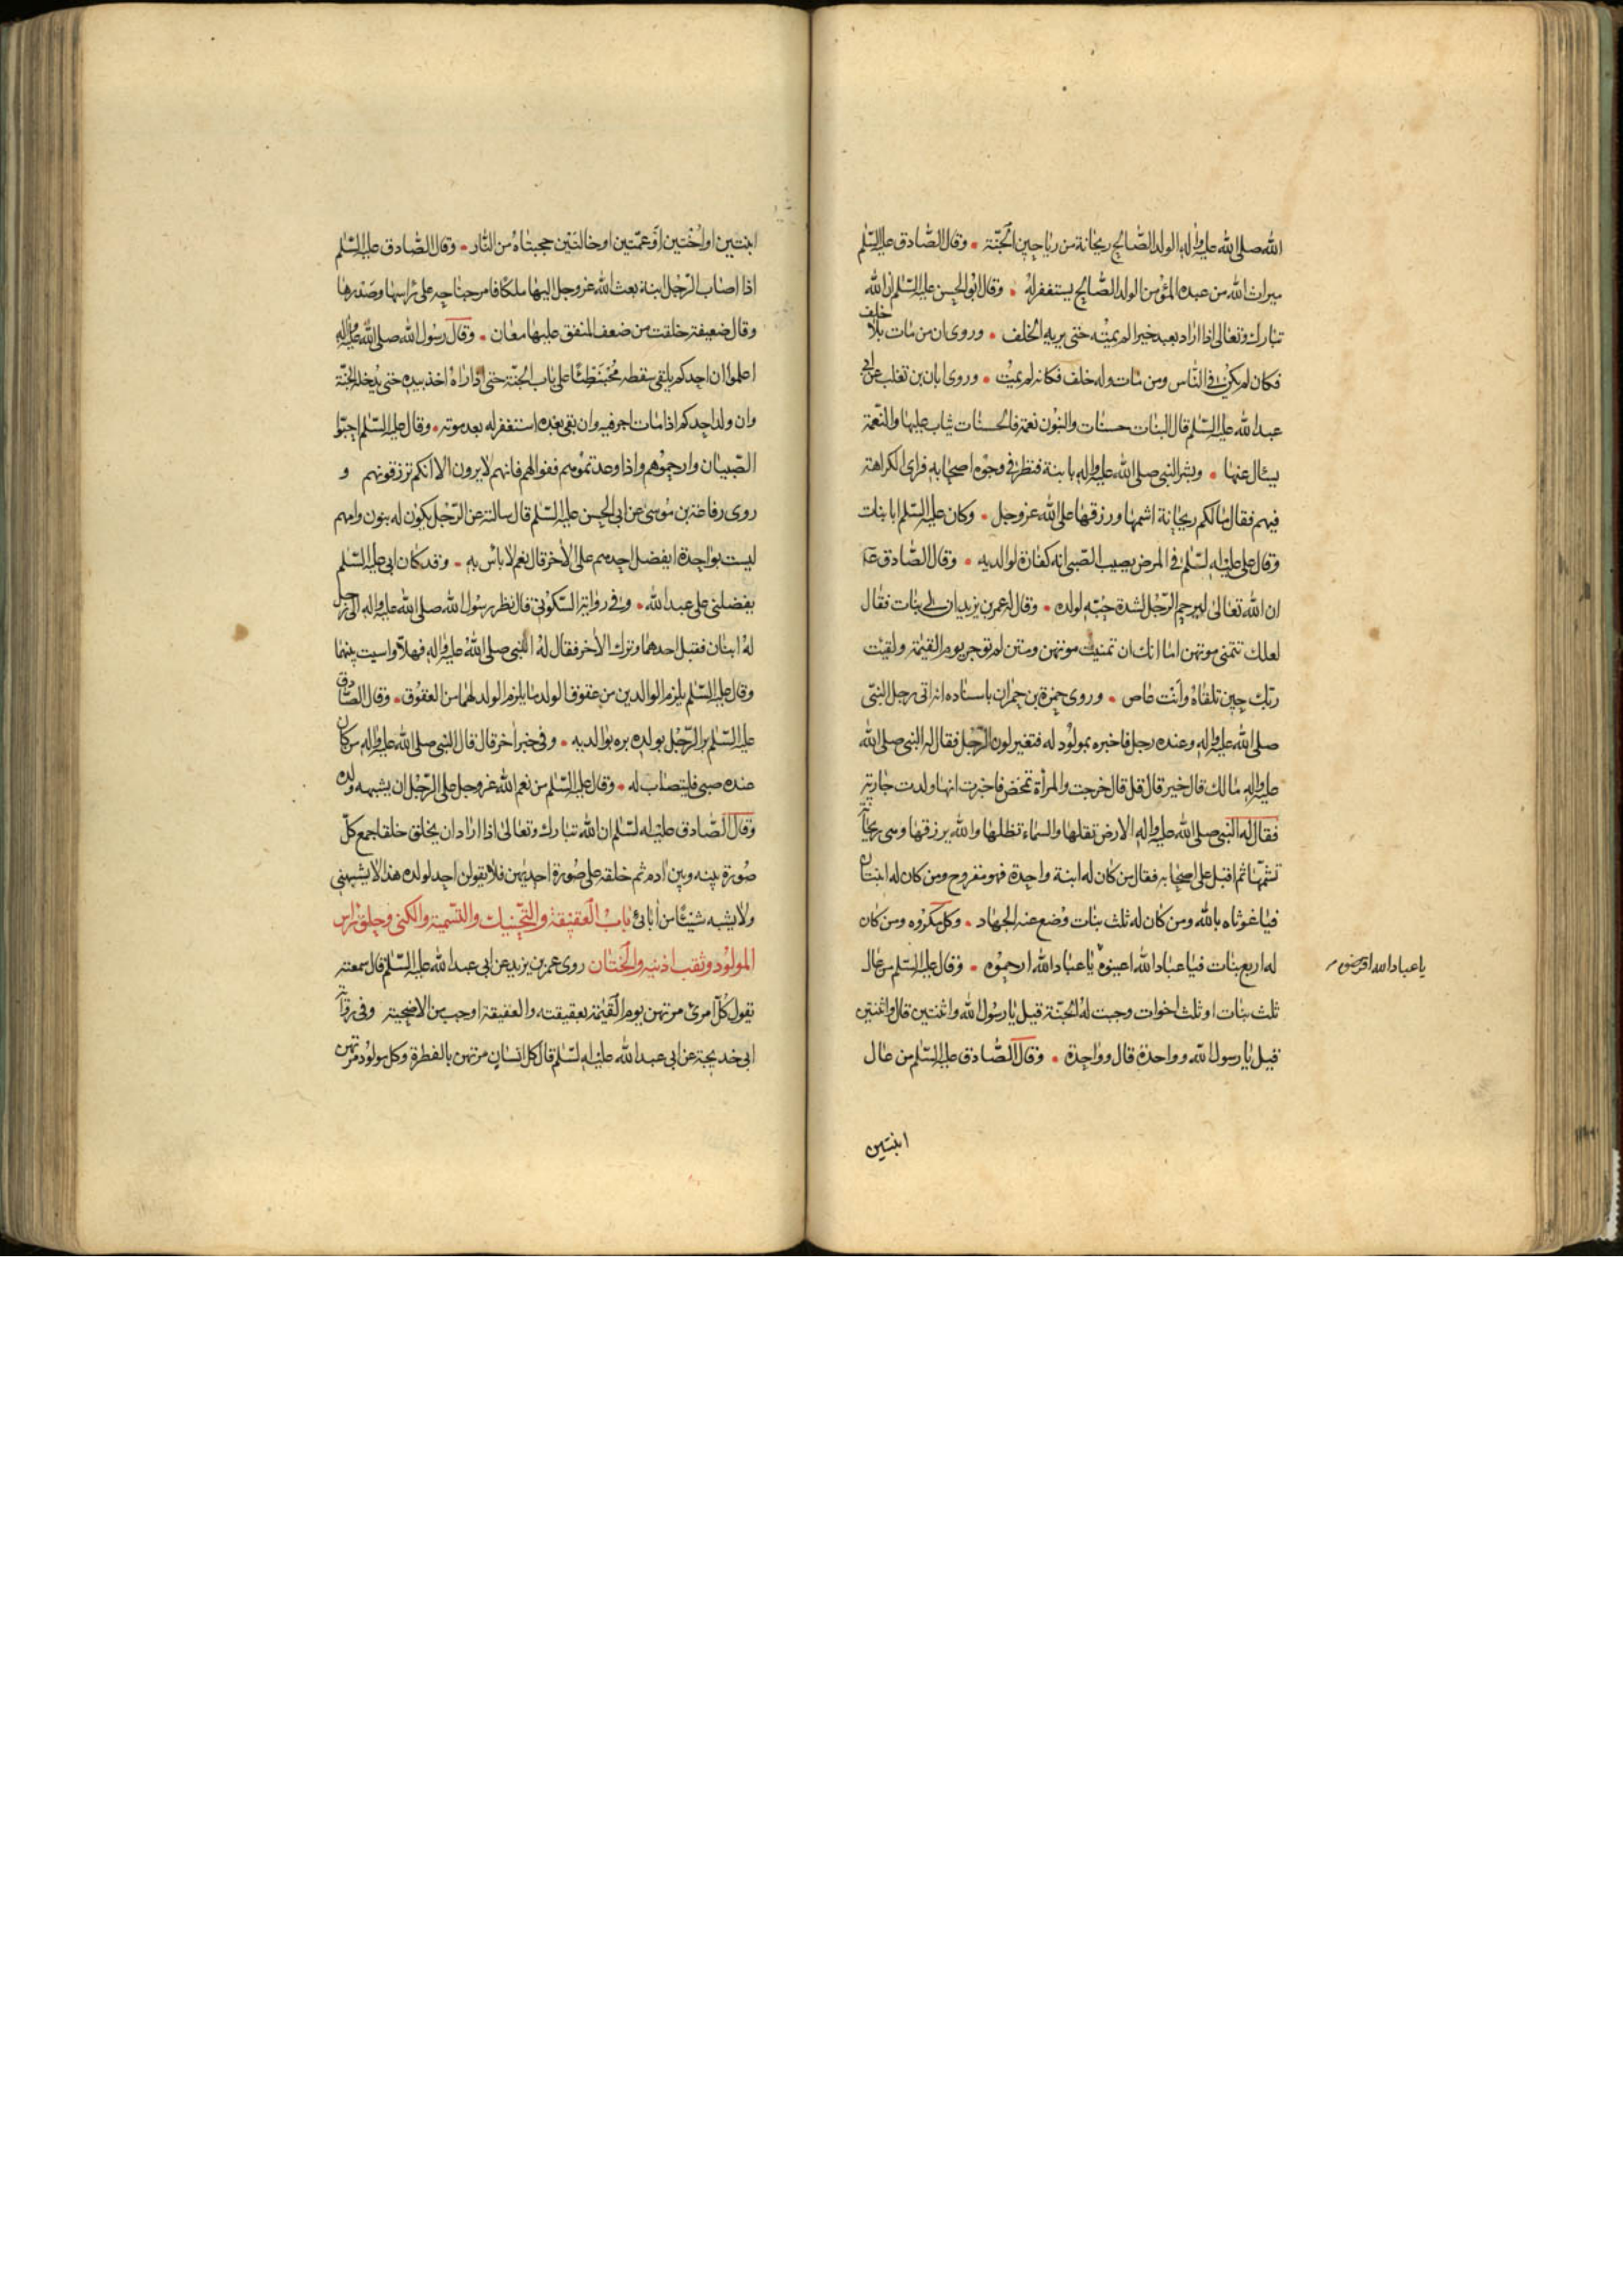 الله صلى الله عليه واله الولد الصالح ريحانة من رياحين الجنة وقال الصادق عليه السلم
ميراث الله من عبده المؤمن الولد الصالح يستغفر له وقال ابو الحسن عليه السلم ان الله
تبارك وتعالى اذا اراد بعبد خيرا لم يمته حتى يريه الخلف وروى ان من مات بلا خلف
فكان لم يكن في الناس ومن مات وله خلف فكانه لم يمت وروى ابان بن تغلب عن ابي
عبد الله عليه السلم قال البنات حسنات والبنون نعمة فالحسنات يثاب عليها والنعمة
يسئال عنها وبشر النبي صلى الله عليه واله بابنة فنظر في وجوه اصحابه فراى الكراهة
فيهم فقال ما لكم ريحانة اشمها ورزقها على الله عز وجل وكان عليه السلم ابا بنات
وقال على عليه السلم في المرض يصيب الصبي انه كفارة لوالديه وقال الصادق ع
ان الله تعالى ليرحم الرجل لشدة حبه لولده وقال له عمر بن يزيد ان لي بنات فقال
لعلك تتمنى موتهن اما انك ان تمنيت موتهن ومتن لم توجر يوم القيمة ولقيت
ربك حين تلقاه وانت عاص وروى حمزة بن حمران باسناده انه اتى رجل النبي
صلى الله عليه واله وعنده رجل فاخبره بمولود له فتغير لون الرجل فقال له النبي صلى الله
عليه واله ما لك قال خير قال قل قال خرجت والمرأة تمخض فاخبرت انها ولدت جارية
فقال له النبي صلى الله عليه واله الارض تقلها والسماء تظلها والله يرزقها وهي ريحانة
تشمها ثم اقبل على اصحابه فقال من كان له ابنة واحدة فهو مفروح ومن كان له ابنتان
فيا غوثاه بالله ومن كان له ثلث بنات وضع عنه الجهاد وكل مكروه ومن كان
له اربع بنات فيا عباد الله اعينوه يا عباد الله ارحموه وقال عليه السلم من عال
يا عباد الله اقرضوه
ثلث بنات او ثلث اخوات وجبت له الجنة قيل يا رسول الله واثنتين قال واثنتين
قيل يا رسول الله وواحدة قال وواحدة وقال الصادق عليه السلم من عال
ابنتين
ابنتين او اختين او عمتين او خالتين حجبتاه من النار وقال الصادق عليه السلم
اذا اصاب الرجل ابنة بعث الله عز وجل اليها ملكا فامر جناحه على راسها وصدرها
وقال ضعيفة خلقت من ضعف المنفق عليها معان وقال رسول الله صلى الله عليه واله
اعلموا ان احدكم يلقى سقطه محبنطئا على باب الجنة حتى اذا راه اخذ بيده حتى يدخله الجنة
وان ولد احدكم اذا مات اجر فيه وان بقي بعده استغفر له بعد موته وقال عليه السلم احبوا
الصبيان وارحموهم واذا وعدتموهم ففوا لهم فانهم لا يرون الا انكم ترزقونهم و
روى رفاعة بن موسى عن ابي الحسن عليه السلم قال سالته عن الرجل يكون له بنون وامهم
ليست بواحدة ايفضل احدهم على الاخر قال نعم لا باس به وقد كان ابي عليه السلم
يفضلني على عبد الله وفي رواية السكوني قال نظر رسول الله صلى الله عليه واله الى رجل
له ابنان فقبل احدهما وترك الاخر فقال له النبي صلى الله عليه واله فهلا واسيت بينهما
وقال عليه السلم يلزم الوالدين من عقوق الولد ما يلزم الولد لهما من العقوق وقال الصادق
عليه السلم بر الرجل بولده بره بوالديه وفي خبر اخر قال قال النبي صلى الله عليه واله من كان
عنده صبي فليتصاب له وقال عليه السلم من نعم الله عز وجل على الرجل ان يشبهه ولده
وقال الصادق عليه السلم ان الله تبارك وتعالى اذا اراد ان يخلق خلقا جمع كل
صورة بينه وبين ادم ثم خلقه على صورة احديهن فلا يقولن احد لولده هذا لا يشبهني
ولا يشبه شيئا من ابائي باب العقيقة والتحنيك والتسمية والكنى وحلق راس
المولود وثقب اذنيه والختان روى عمر بن يزيد عن ابي عبد الله عليه السلم قال سمعته
يقول كل امرئ مرتهن يوم القيمة بعقيقته والعقيقة اوجب من الاضحية وفي رواية
ابي خديجة عن ابي عبد الله عليه السلم قال كل انسان مرتهن بالفطرة وكل مولود مرتهن